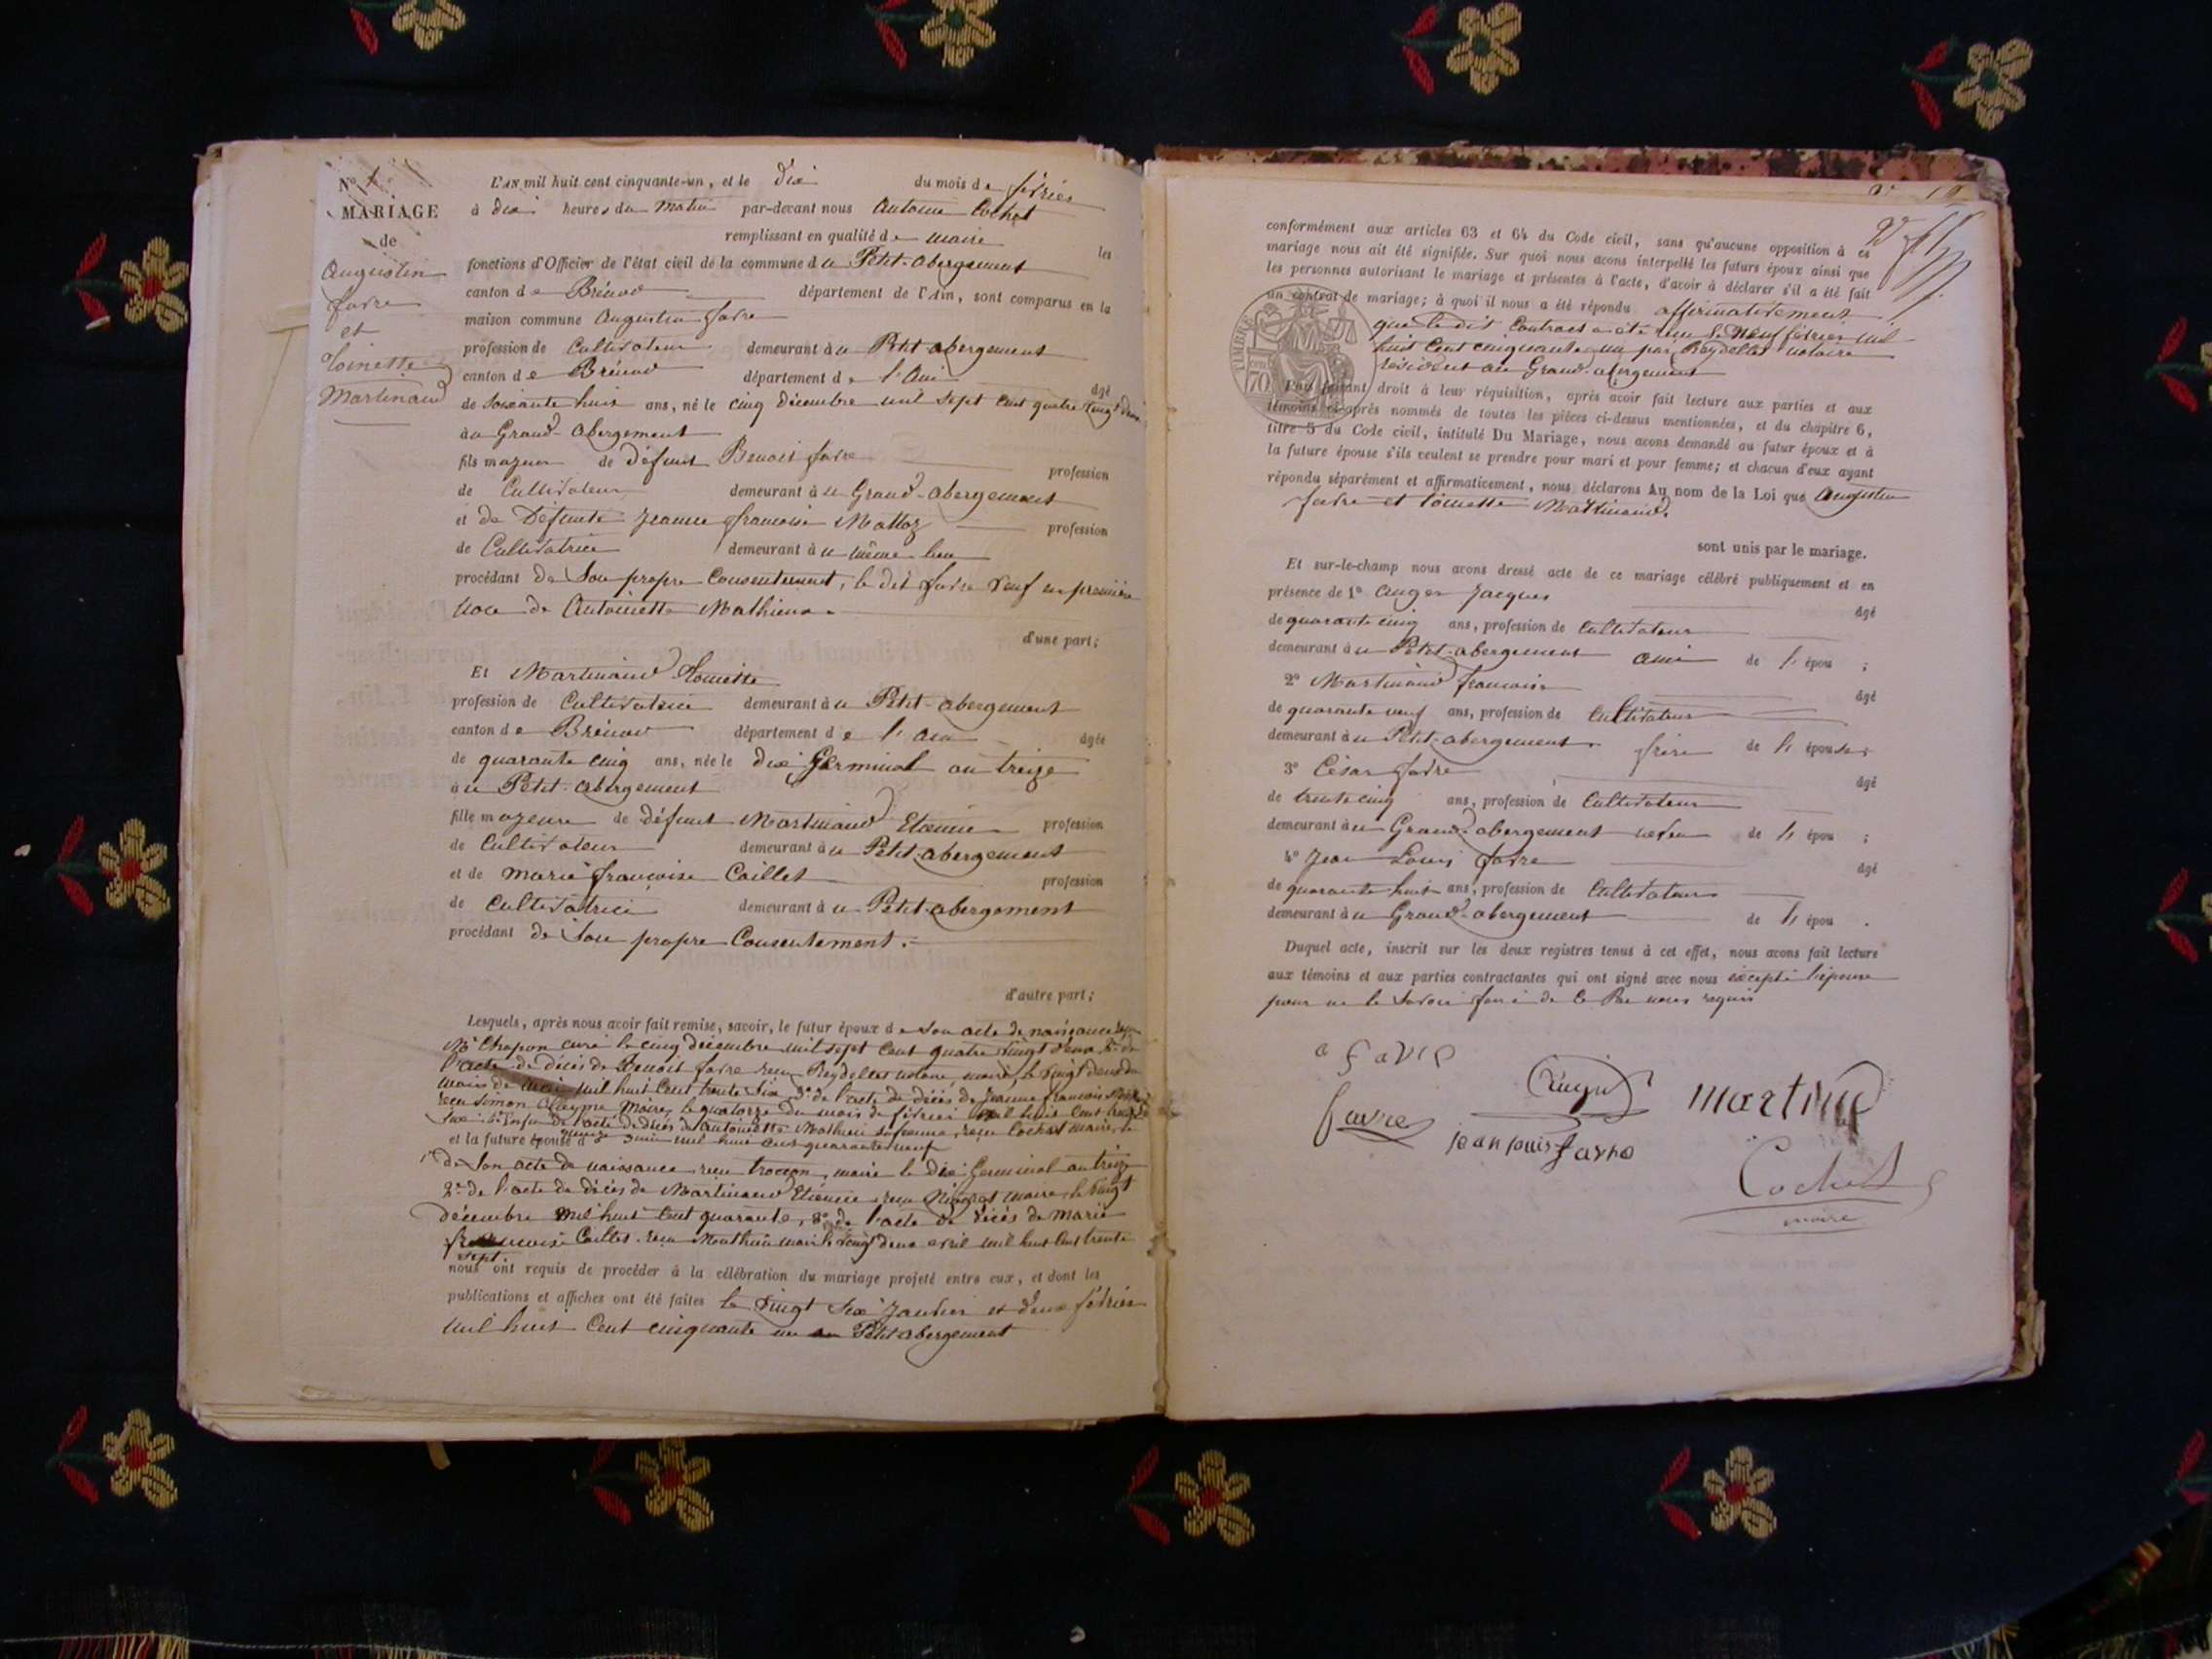 No 1
MARIAGE
de
Augustin
favre
et
Toinette
Martinand
L'AN mil huit cent cinquante-un, et le dix du mois de février
à dix heures du matin par-devant nous Antoine Cochet
remplissant en qualité de maire les
fonctions d'Officier de l'état civil de la commune du Petit-abergement
canton de Brénod département de l'Ain, sont comparus en la
maison commune Augustin favre
profession de Cultivateur demeurant au Petit abergement
canton de Brénod département de l'Ain âgé
de soixante huit ans, né le cinq décembre mil sept cent quatre vingt deux
au Grand-abergement
fils majeur de défunt Benoit favre profession
de Cultivateur demeurant au Grand-abergement
et de Défunte Jeanne françoise profession
de Cultivatrice demeurant au même lieu
procédant de Son propre Consentement, le dit favre veuf en première
noce de Antoinette Mathieu
d'une part;
Et Martinand Toinette
profession de Cultivatrice demeurant au Petit-abergement
canton de Brénod département de l'Ain âgée
de quarante cinq ans, née le dix Germinal an treize
au Petit-abergement
fille majeure de défunt Martinand Etienne profession
de Cultivateur demeurant au Petit-abergement
et de marie françoise Caillet profession
de Cultivatrice demeurant au Petit-abergement
procédant de Son propre Consentement.
d'autre part;
Lesquels, après nous avoir fait remise, savoir, le futur époux de son acte de naissance reçu
Mr Chapon curé le cinq décembre mil sept cent quatre vingt deux 2o de
l'acte de décès de Benoit favre reçu Reydellet notaire maire, le vingt deux du
mois de mai mil huit cent trente six 3o de l'acte de décès de Jeanne françoise
reçu Simon maire, le quatorze du mois de février mil huit cent
de l'acte de décès de Antoinette Mathieu sa femme, reçu Cochet maire, le
et la future épouse quinze juin mil huit cent quarante neuf
1o de Son acte de naissance reçu maire le dix Germinal an treize
2o de l'acte de décès de Martinand Etienne reçu maire, le vingt
décembre mil huit cent quarante, 3o de l'acte de décès de marie
françoise Caillet reçu maire le vingt deux avril mil huit cent trente
sept.
nous ont requis de procéder à la célébration du mariage projeté entre eux, et dont les
publications et affiches ont été faites le vingt six Janvier et deux février
mil huit cent cinquante un au Petit abergement
conformément aux articles 63 et 64 du Code civil, sans qu'aucune opposition à ce
mariage nous ait été signifiée. Sur quoi nous avons interpellé les futurs époux ainsi que
les personnes autorisant le mariage et présentes à l'acte, d'avoir à déclarer s'il a été fait
un contrat de mariage; à quoi il nous a été répondu affirmativement
que le dit Contract a été reçu le Neuf février mil
huit Cent cinquante un par Reydellet notaire
résident au Grand-abergement
TIMBRE
70
Puis faisant droit à leur réquisition, après avoir fait lecture aux parties et aux
témoins ci-après nommés de toutes les pièces ci-dessus mentionnées, et du chapitre 6,
titre 5 du Code civil, intitulé Du Mariage, nous avons demandé au futur époux et à
la future épouse s'ils veulent se prendre pour mari et pour femme; et chacun d'eux ayant
répondu séparément et affirmativement, nous déclarons Au nom de la Loi que Augustin
favre et Toinette Martinand
sont unis par le mariage.
Et sur-le-champ nous avons dressé acte de ce mariage célébré publiquement et en
présence de 1o Auger Jacques âgé
de quarante cinq ans, profession de Cultivateur
demeurant au Petit-abergement ami de l'épou ;
2o Martinand françois âgé
de quarante neuf ans, profession de Cultivateur
demeurant au Petit-abergement frère de l'épouse;
3o César favre âgé
de trente cinq ans, profession de Cultivateur
demeurant au Grand-abergement neveu de l'épou ;
4o Jean Louis favre âgé
de quarante huit ans, profession de Cultivateur
demeurant au Grand-abergement de l'épou .
Duquel acte, inscrit sur les deux registres tenus à cet effet, nous avons fait lecture
aux témoins et aux parties contractantes qui ont signé avec nous excepté l'épouse
pour ne le Savoir faire de ce Par nous requis
a favre
favre
jean louis favre
martinand
Cochet
maire